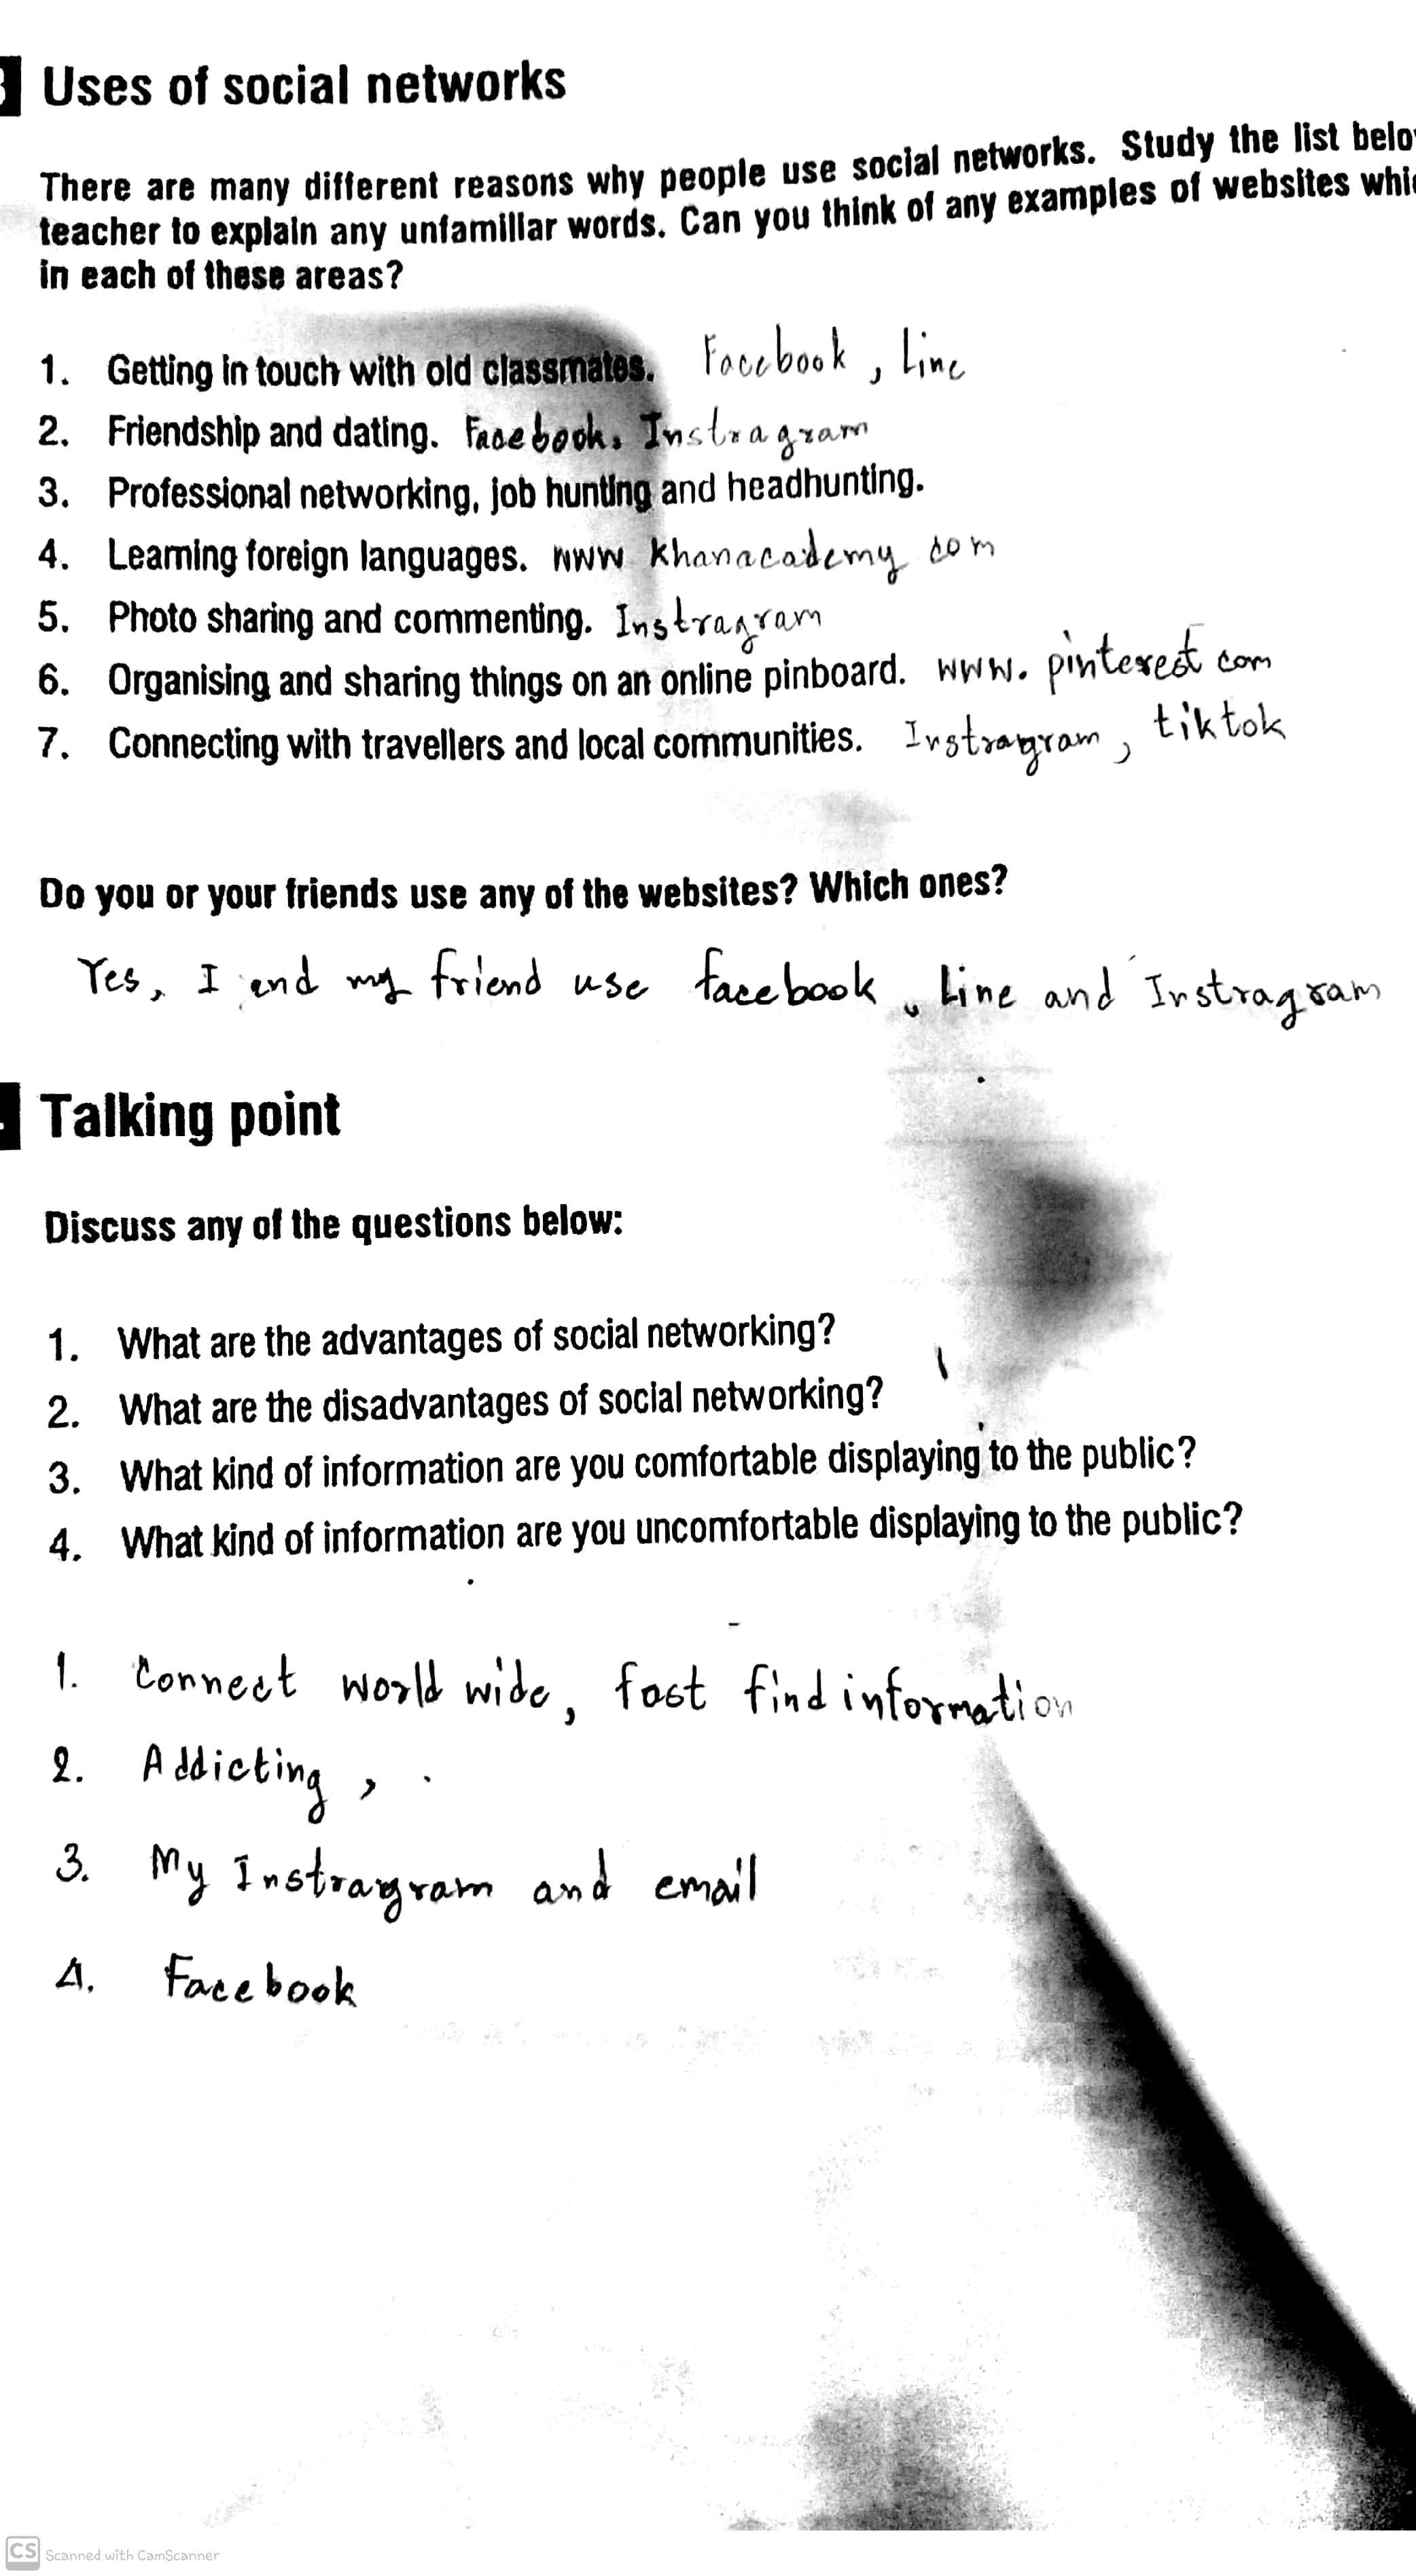 Uses of social networks
There are many different reasons why people use social networks. Study the list belo
teacher to explain any unfamiliar words. Can you think of any examples of websites whi
in each of these areas?
1. Getting in touch with old classmates. Facebook, Line
2. Friendship and dating. Facebook, Instragram
3. Professional networking, job hunting and headhunting.
4. Learning foreign languages. www khanacademy com
5. Photo sharing and commenting. Instragram
6. Organising and sharing things on an online pinboard. www. pinterest com
7. Connecting with travellers and local communities. Instragram, tiktok
Do you or your friends use any of the websites? Which ones?
Yes, I and my friend use facebook, Line and Instragram
Talking point
Discuss any of the questions below:
1. What are the advantages of social networking?
2. What are the disadvantages of social networking?
3. What kind of information are you comfortable displaying to the public?
4. What kind of information are you uncomfortable displaying to the public?
1. Connect world wide, fast find information
2. Addicting,
3. My Instragram and email
4. Facebook
CS Scanned with CamScanner